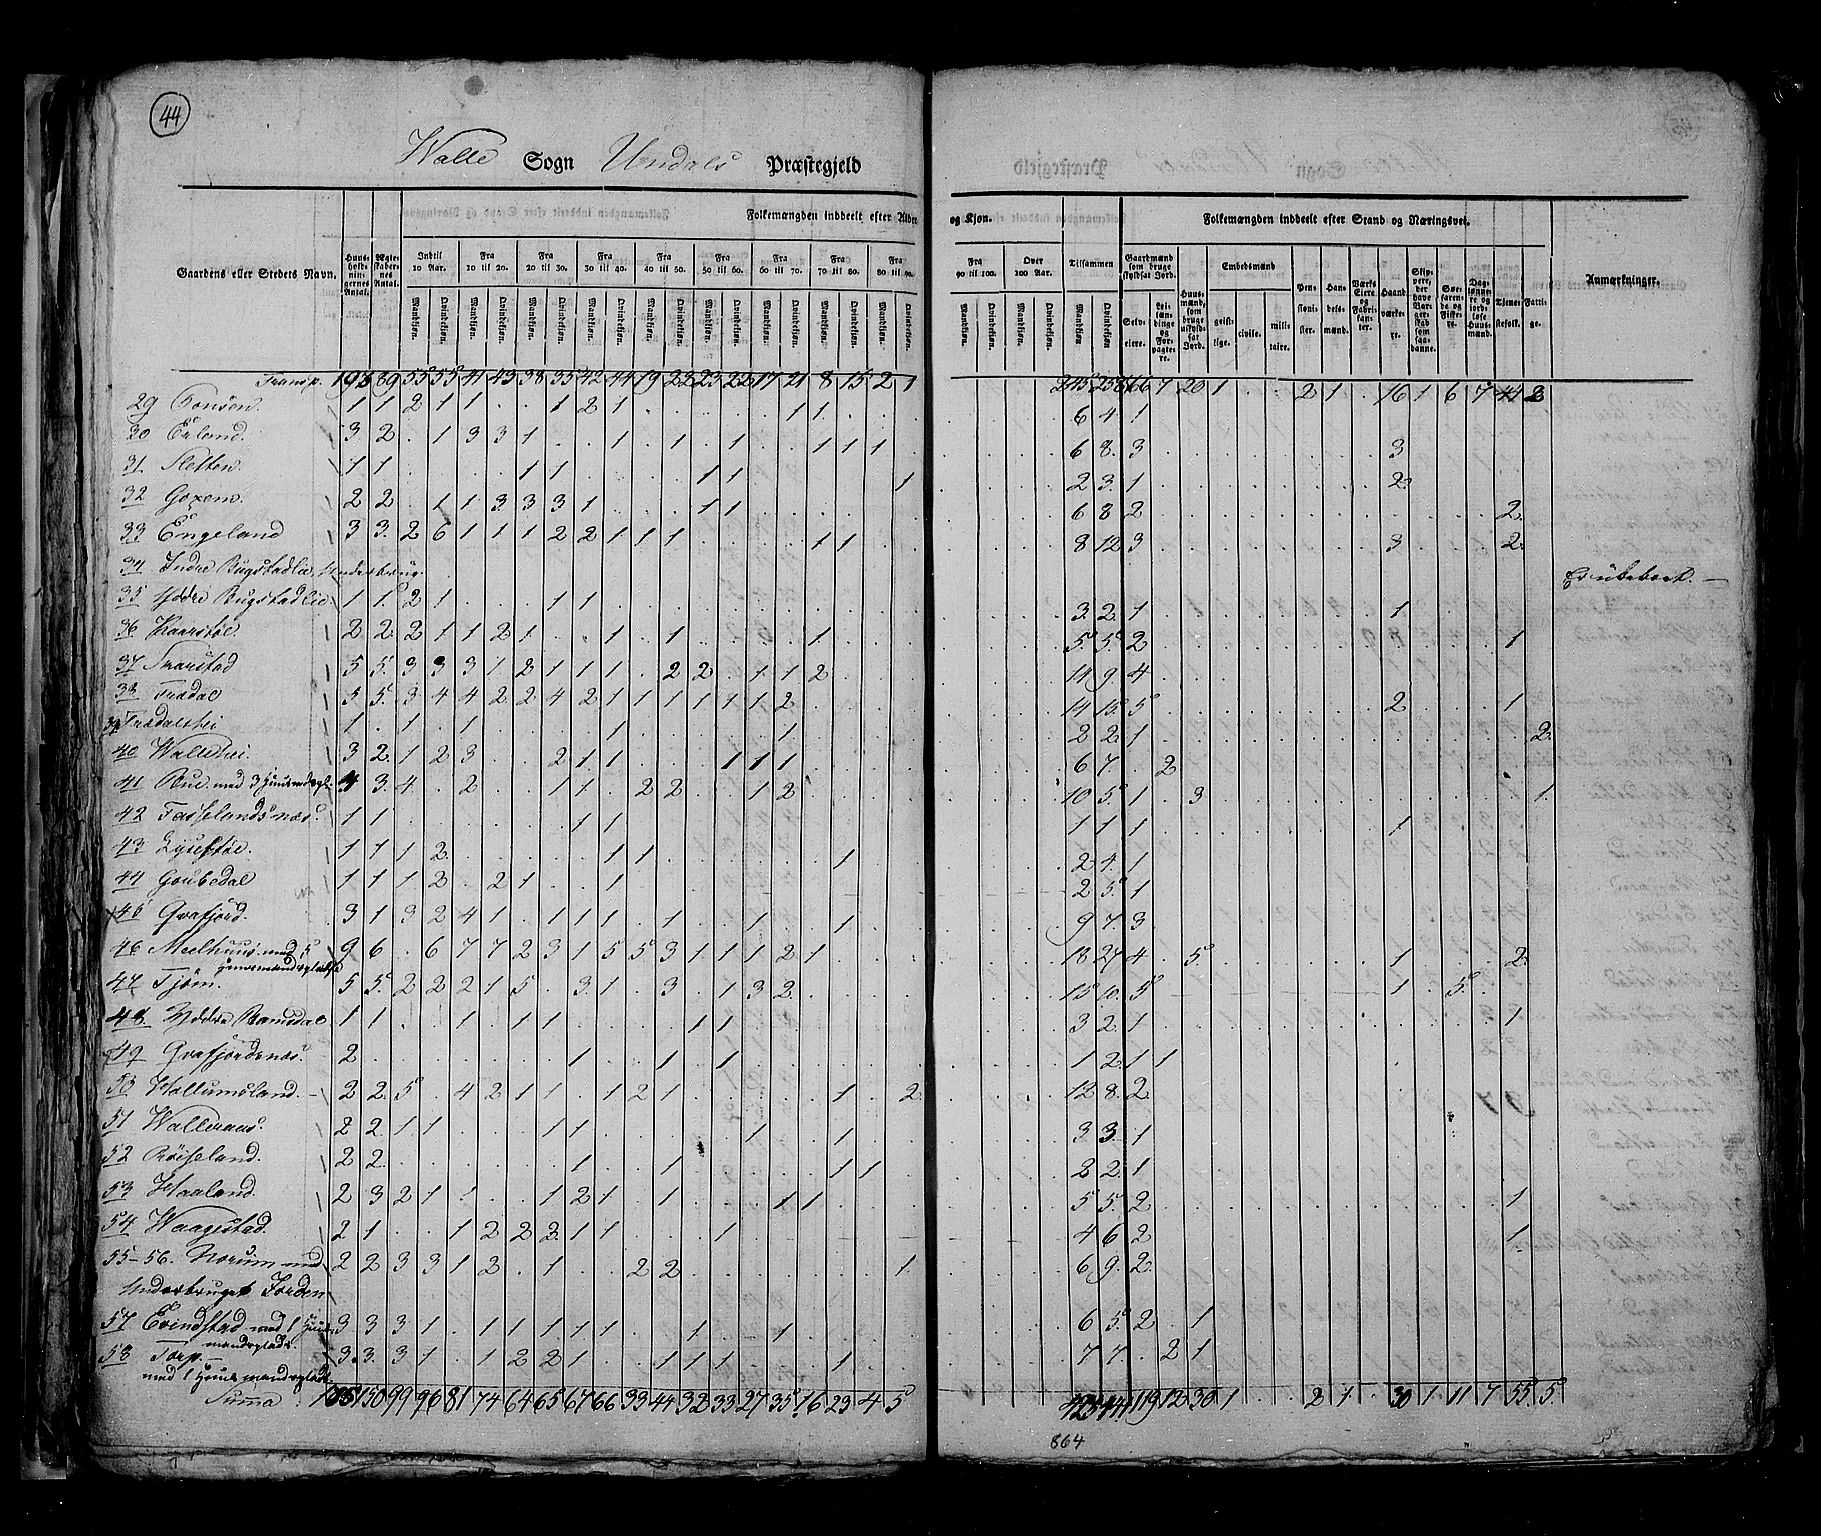 44
Walle Sogn Undals Præstegjeld
Gaardens eller Stedets Navn.
Huusholdningernes Antal.
Ægteskabernes Antal.
Folkemængden inddeelt efter Alder og Kjøn.
Indtil 10 Aar.
Fra 10 til 20.
Fra 20 til 30.
Fra 30 til 40.
Fra 40 til 50.
Fra 50 til 60.
Fra 60 til 70.
Fra 70 til 80.
Fra 80 til 90.
Fra 90 til 100.
Over 100 Aar.
Tilsammen
Mandkjøn. Qvindekjøn.
Folkemængden inddeelt efter Stand og Næringsvei.
Gaardmænd som bruge skyldsat Jord.
Selveiere.
Leilændinge og Forpagtere.
Huusmænd, som bruge uskyldsat Jord.
Embedsmænd
geistlige.
civile.
militaire.
Pensionister.
Handelsmænd.
Værks Eiere og Fabrikanter.
Haandværkere.
Skippere, der have Borgerskab som saadanne.
Søefarende og Fiskere.
Daglønnere og jordløse Huusmænd.
Tjenestefolk.
Fattige.
Anmærkninger.
Transp. 89 55 55 41 43 38 35 42 44 19 22 23 22 17 21 8 15 2 1 7 20 1 2 1 16 1 6 7 44 2
29 1 1 2 1 1 1 2 1 1 1 6 4 1
30 3 2 1 3 3 1 1 1 1 1 1 1 6 8 3 3
31 Sletten 1 1 1 1 1 1 1 2 3 1 2
32 2 2 1 1 3 3 3 1 1 1 6 8 2 2
33 Engeland 3 3 2 6 1 1 1 2 2 1 1 1 1 1 8 12 3 3 2
34 Indre Bugstadlie, Underbrug.
35 Yddre Bugstadlie 1 1 2 1 1 1 3 2 1 1
36 2 2 2 1 1 2 1 1 1 1 5 5 2 1
37 5 5 3 3 3 1 2 1 1 1 2 2 1 1 2 14 9 4
38 Fradal 5 5 3 4 4 2 2 4 2 1 1 1 1 1 1 2 14 15 5 2 1
39 1 1 1 1 1 2 2 1 2
40 Wallehei 3 2 1 2 3 2 1 1 1 1 1 6 7 2
41 Bue med 3 4 3 4 2 1 1 2 2 1 2 10 5 1 3 1
42 1 1 1 1 1 1 1 1
43 1 1 1 2 1 1 1 2 4 1
44 Goubedal 1 1 1 2 2 1 1 2 5 1
45 Qvafjord. 3 1 3 2 4 1 1 1 1 1 1 1 9 7 3
46 Meelhuus med 5 9 6 6 7 7 2 3 1 5 5 3 1 1 1 2 1 18 27 4 5 1 2
Huusmandspladse
47 Tjøm. 5 5 2 2 2 1 5 3 1 3 1 3 2 15 10 5 1 5
48 Yddre Ramsdal 1 1 1 1 1 1 1 3 2 1 1
49 Qvafjordsnæs 2 1 1 1 1 2 1 1
50 Hallumsland. 2 2 5 4 2 1 1 1 2 1 1 2 12 8 2
51 Wallenæs. 2 2 1 1 1 1 1 1 3 3 1
52 Røiseland. 2 2 1 1 1 1 2 2 1
53 Haaland. 2 3 2 1 1 1 2 1 1 1 1 5 5 2 1
54 Waagestad. 2 1 1 2 2 2 1 1 1 4 6 2 1
55-56. Norum med 2 2 3 3 1 2 1 2 2 1 6 9 2
Underbruget Jorden
57 Evindstad med 1 Huus- 3 3 3 1 1 1 1 1 1 1 1 6 5 2 1
mandsplads.
58 Torp. 3 3 3 1 1 2 2 1 1 1 1 1 7 7 2 1
med 1 Huusmandsplads.
Summa 150 99 96 81 74 64 65 67 66 33 44 32 33 27 35 16 23 4 5 119 12 30 1 2 1 30 1 11 7 55 5
864